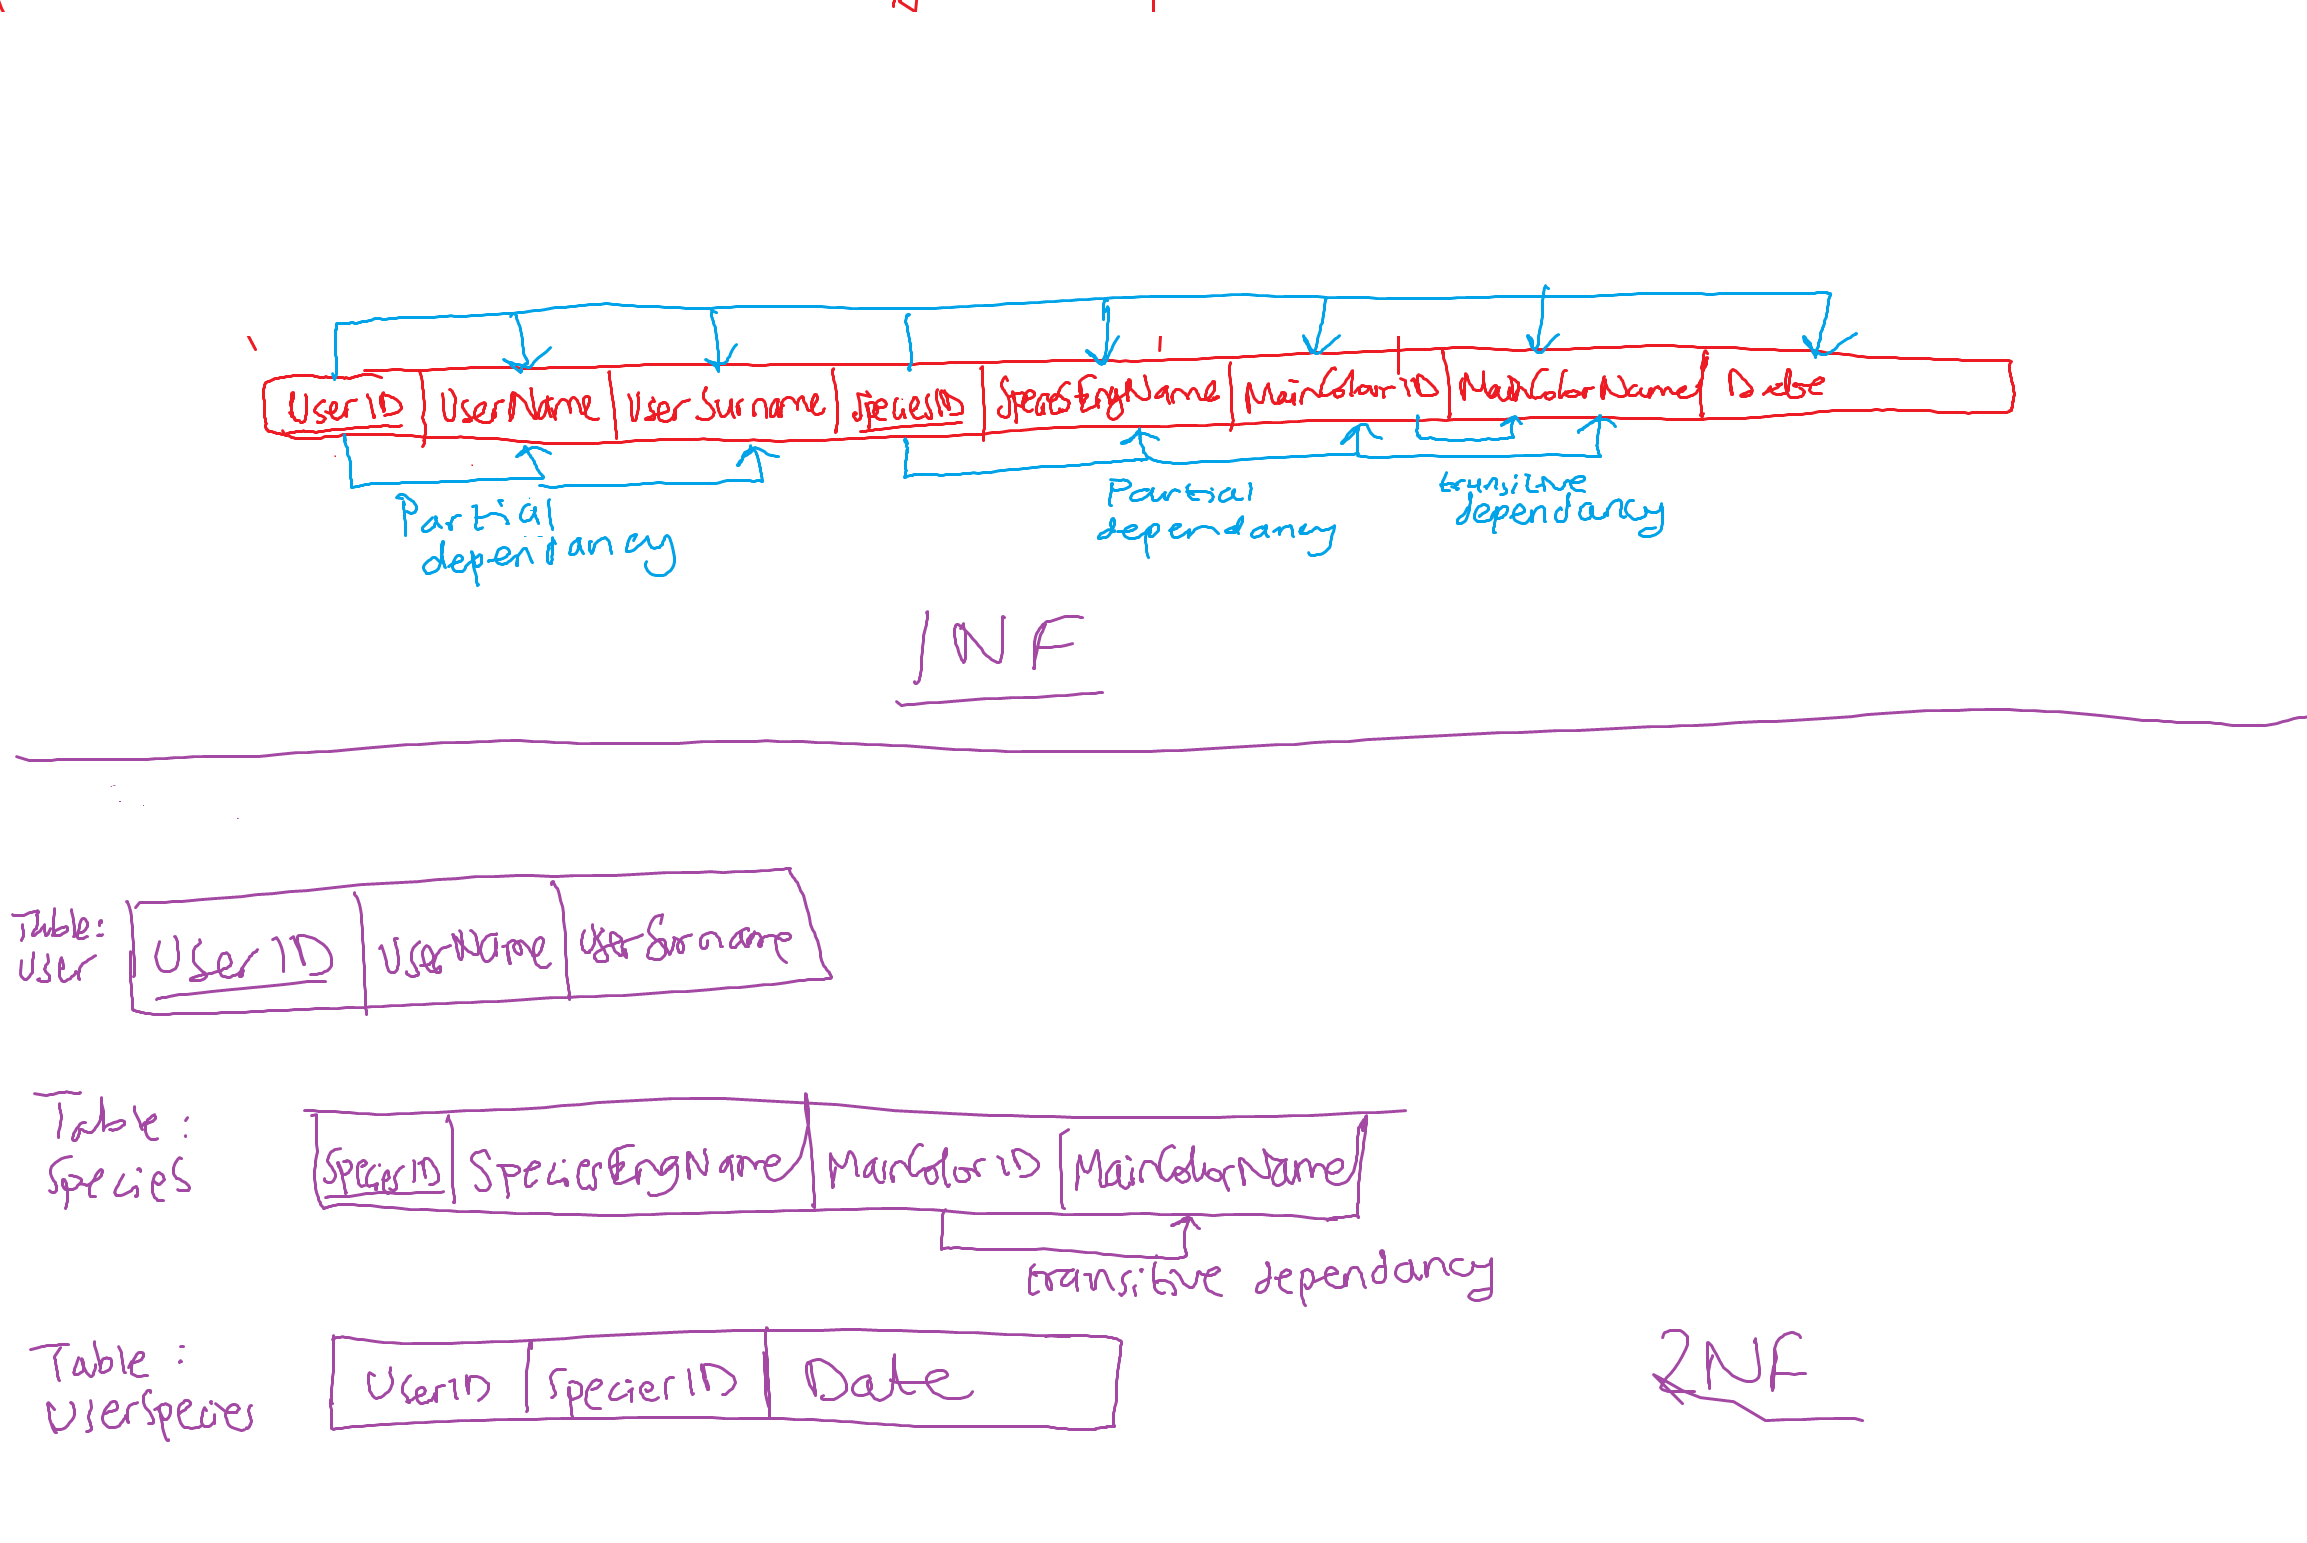 UserID UserName UserSurname SpeciesID SpeciesEngName MainColourID MainColorName Date
Partial
dependancy
Partial
dependancy
transitive
dependancy
1NF
Table:
User
UserID UserName UserSurname
Table:
Species
SpeciesID SpeciesEngName MainColorID MainColorName
transitive dependancy
Table:
UserSpecies
UserID SpeciesID Date
2NF